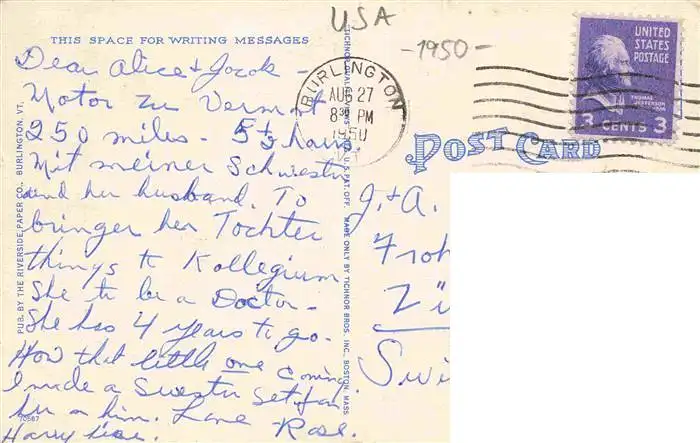 USA
-1950-
THIS SPACE FOR WRITING MESSAGES
Dear Alice & Jacob -
Motor zu Vermont
250 miles - 5½ hours
Mit meiner Schwester
and her husband. To
bringer her Tochter
things to Kollegium
She to be a Doctor -
She has 4 years to go.
How that little one coming
I made a Swester set for
her or him. Love Rose.
Harry
BURLINGTON
AUG 27
8 30 PM
1950
UNITED
STATES
POSTAGE
THOMAS
JEFFERSON
3 CENTS 3
POST CARD
J. & A.
Froh
Zü
Swi
PUB. BY THE RIVERSIDE PAPER CO., BURLINGTON, VT.
70567
MADE ONLY BY TICHNOR BROS. INC., BOSTON, MASS.